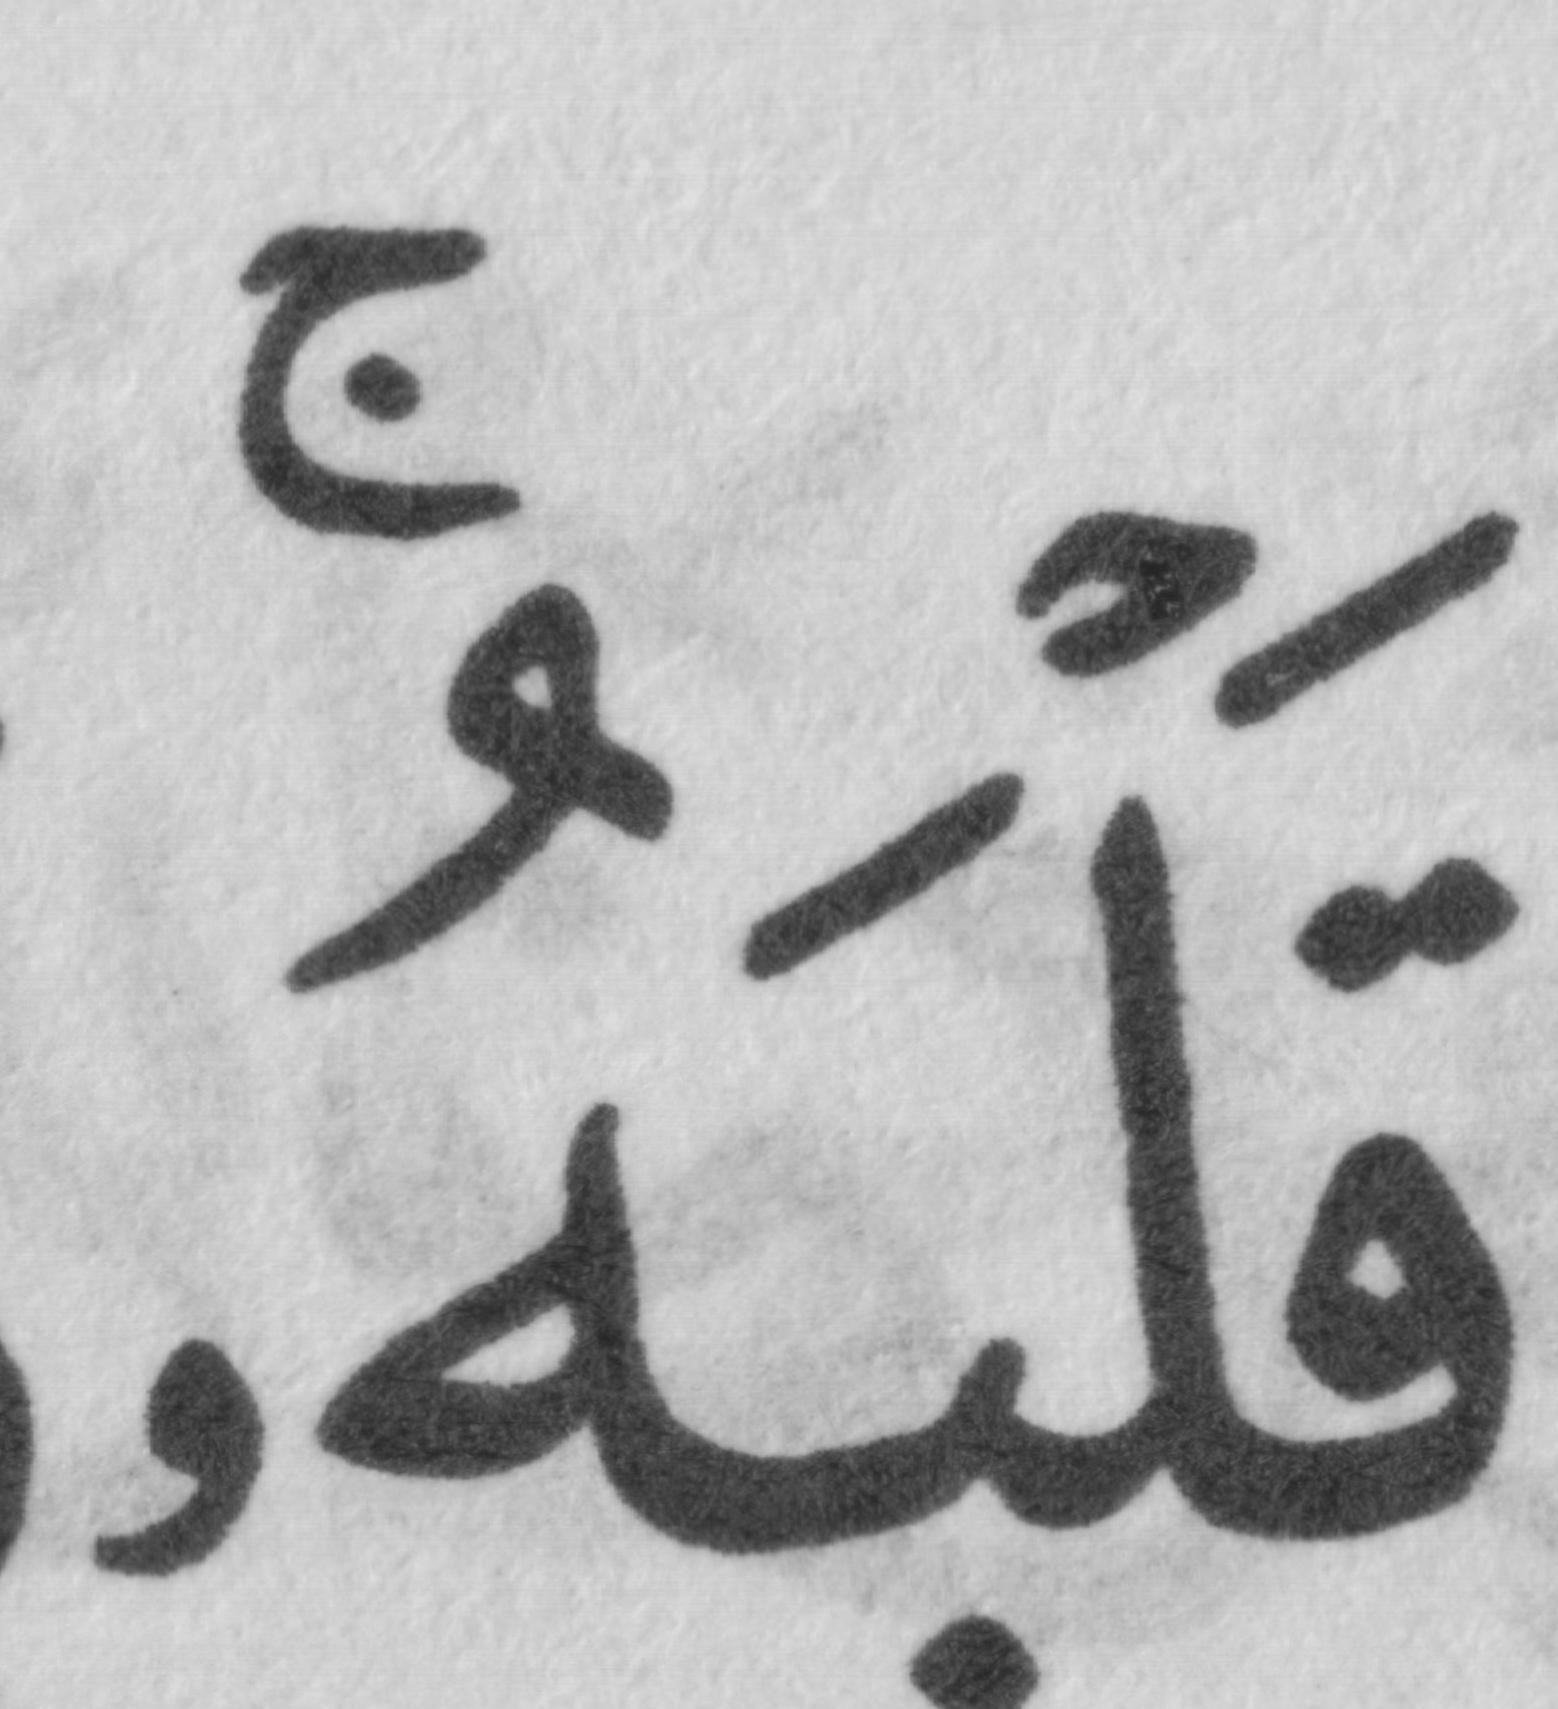 قَلۡبَهُۥۚ